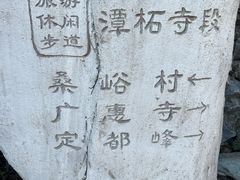 旅游
休闲
步道
潭柘寺段
桑峪村←
广惠寺→
定都峰→